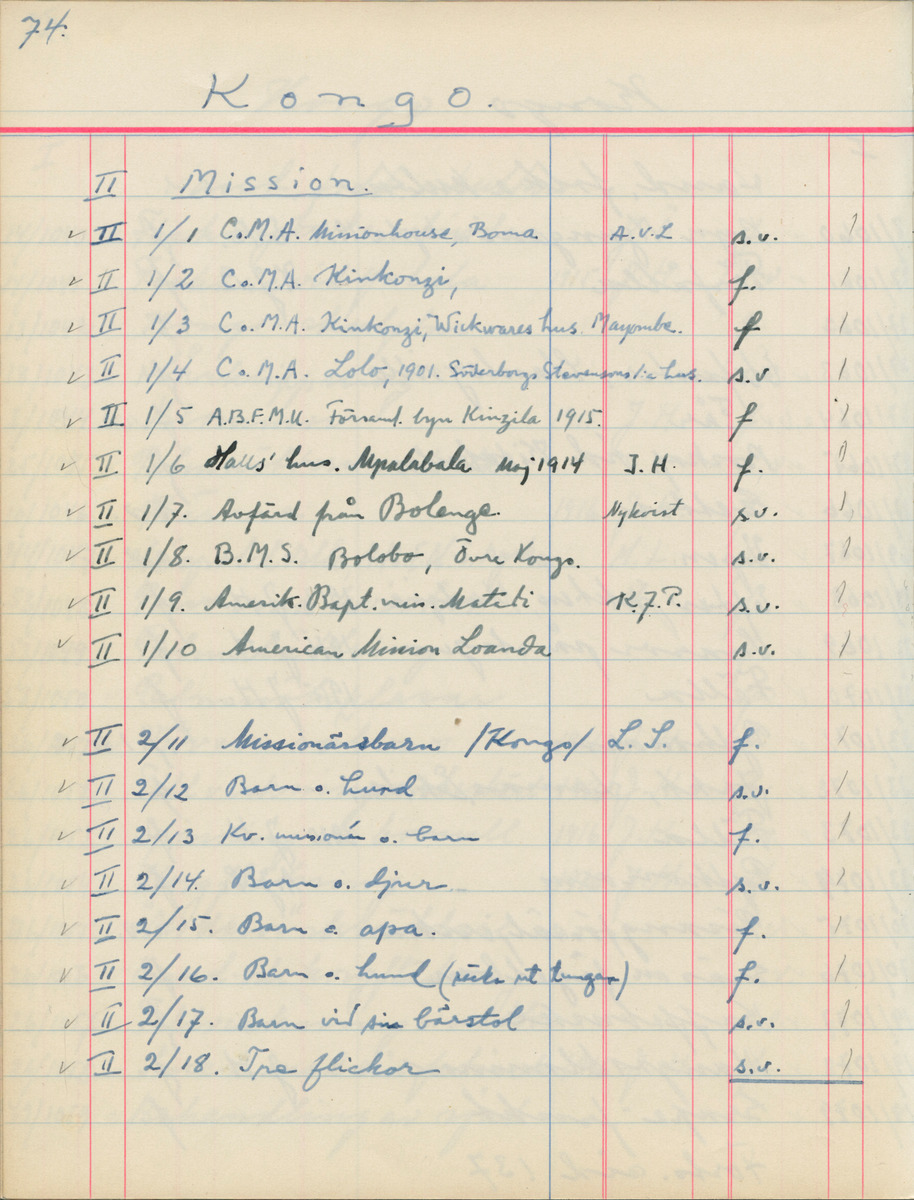 74.
Kongo.
II Mission.
✓ II 1/1 C.M.A. Missionhouse, Boma A.V.L s.v. 1
✓ II 1/2 C.M.A. Kinkonzi, f. 1
✓ II 1/3 C.M.A. Kinkonzi, Wickwares hus. Mayombe. f 1
✓ II 1/4 C.M.A. Lolo, 1901. Söderbergs Stevensons 1:a hus. s.v 1
✓ II 1/5 A.B.F.M.U. Församl. byn Kinzila 1915. f 1
✓ II 1/6 Halls' hus. Mpalabala Maj 1914 J.H. f. 1
✓ II 1/7. Avfärd från Bolenge. Nykvist s.v. 1
✓ II 1/8. B.M.S. Bolobo, Övre Kongo. s.v. 1
✓ II 1/9. Amerik. Bapt. mis. Matadi K.J.P. s.v. 1
✓ II 1/10 American Mission Loanda s.v. 1
✓ II 2/11 Missionärsbarn /Kongo/ L.S. f. 1
✓ II 2/12 Barn o. hund s.v. 1
✓ II 2/13 Kv. missionär o. barn f. 1
✓ II 2/14. Barn o. djur s.v. 1
✓ II 2/15. Barn o. apa. f. 1
✓ II 2/16. Barn o. hund (räcker ut tungan) f. 1
✓ II 2/17. Barn vid sin bärstol s.v. 1
✓ II 2/18. Tre flickor s.v. 1